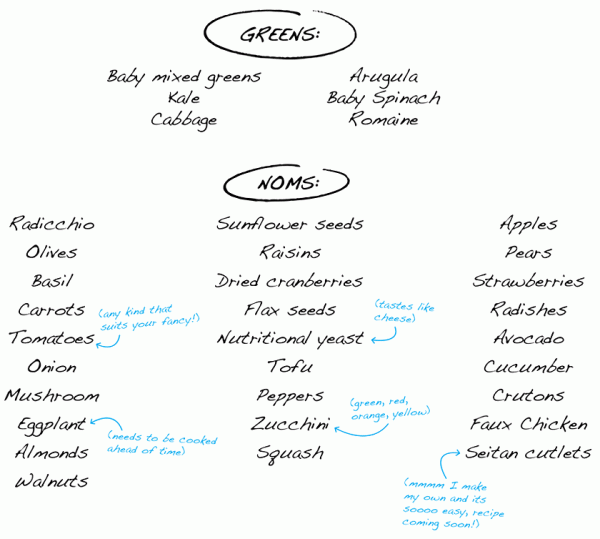 GREENS:
Baby mixed greens
Kale
Cabbage
Arugula
Baby Spinach
Romaine
NOMS:
Radicchio
Olives
Basil
Carrots
(any kind that
suits your fancy!)
Tomatoes
Onion
Mushroom
Eggplant
(needs to be cooked
ahead of time)
Almonds
Walnuts
Sunflower seeds
Raisins
Dried cranberries
Flax seeds
(tastes like
cheese)
Nutritional yeast
Tofu
Peppers
(green, red,
orange, yellow)
Zucchini
Squash
Apples
Pears
Strawberries
Radishes
Avocado
Cucumber
Crutons
Faux Chicken
Seitan cutlets
(mmmm I make
my own and its
soooo easy, recipe
coming soon!)